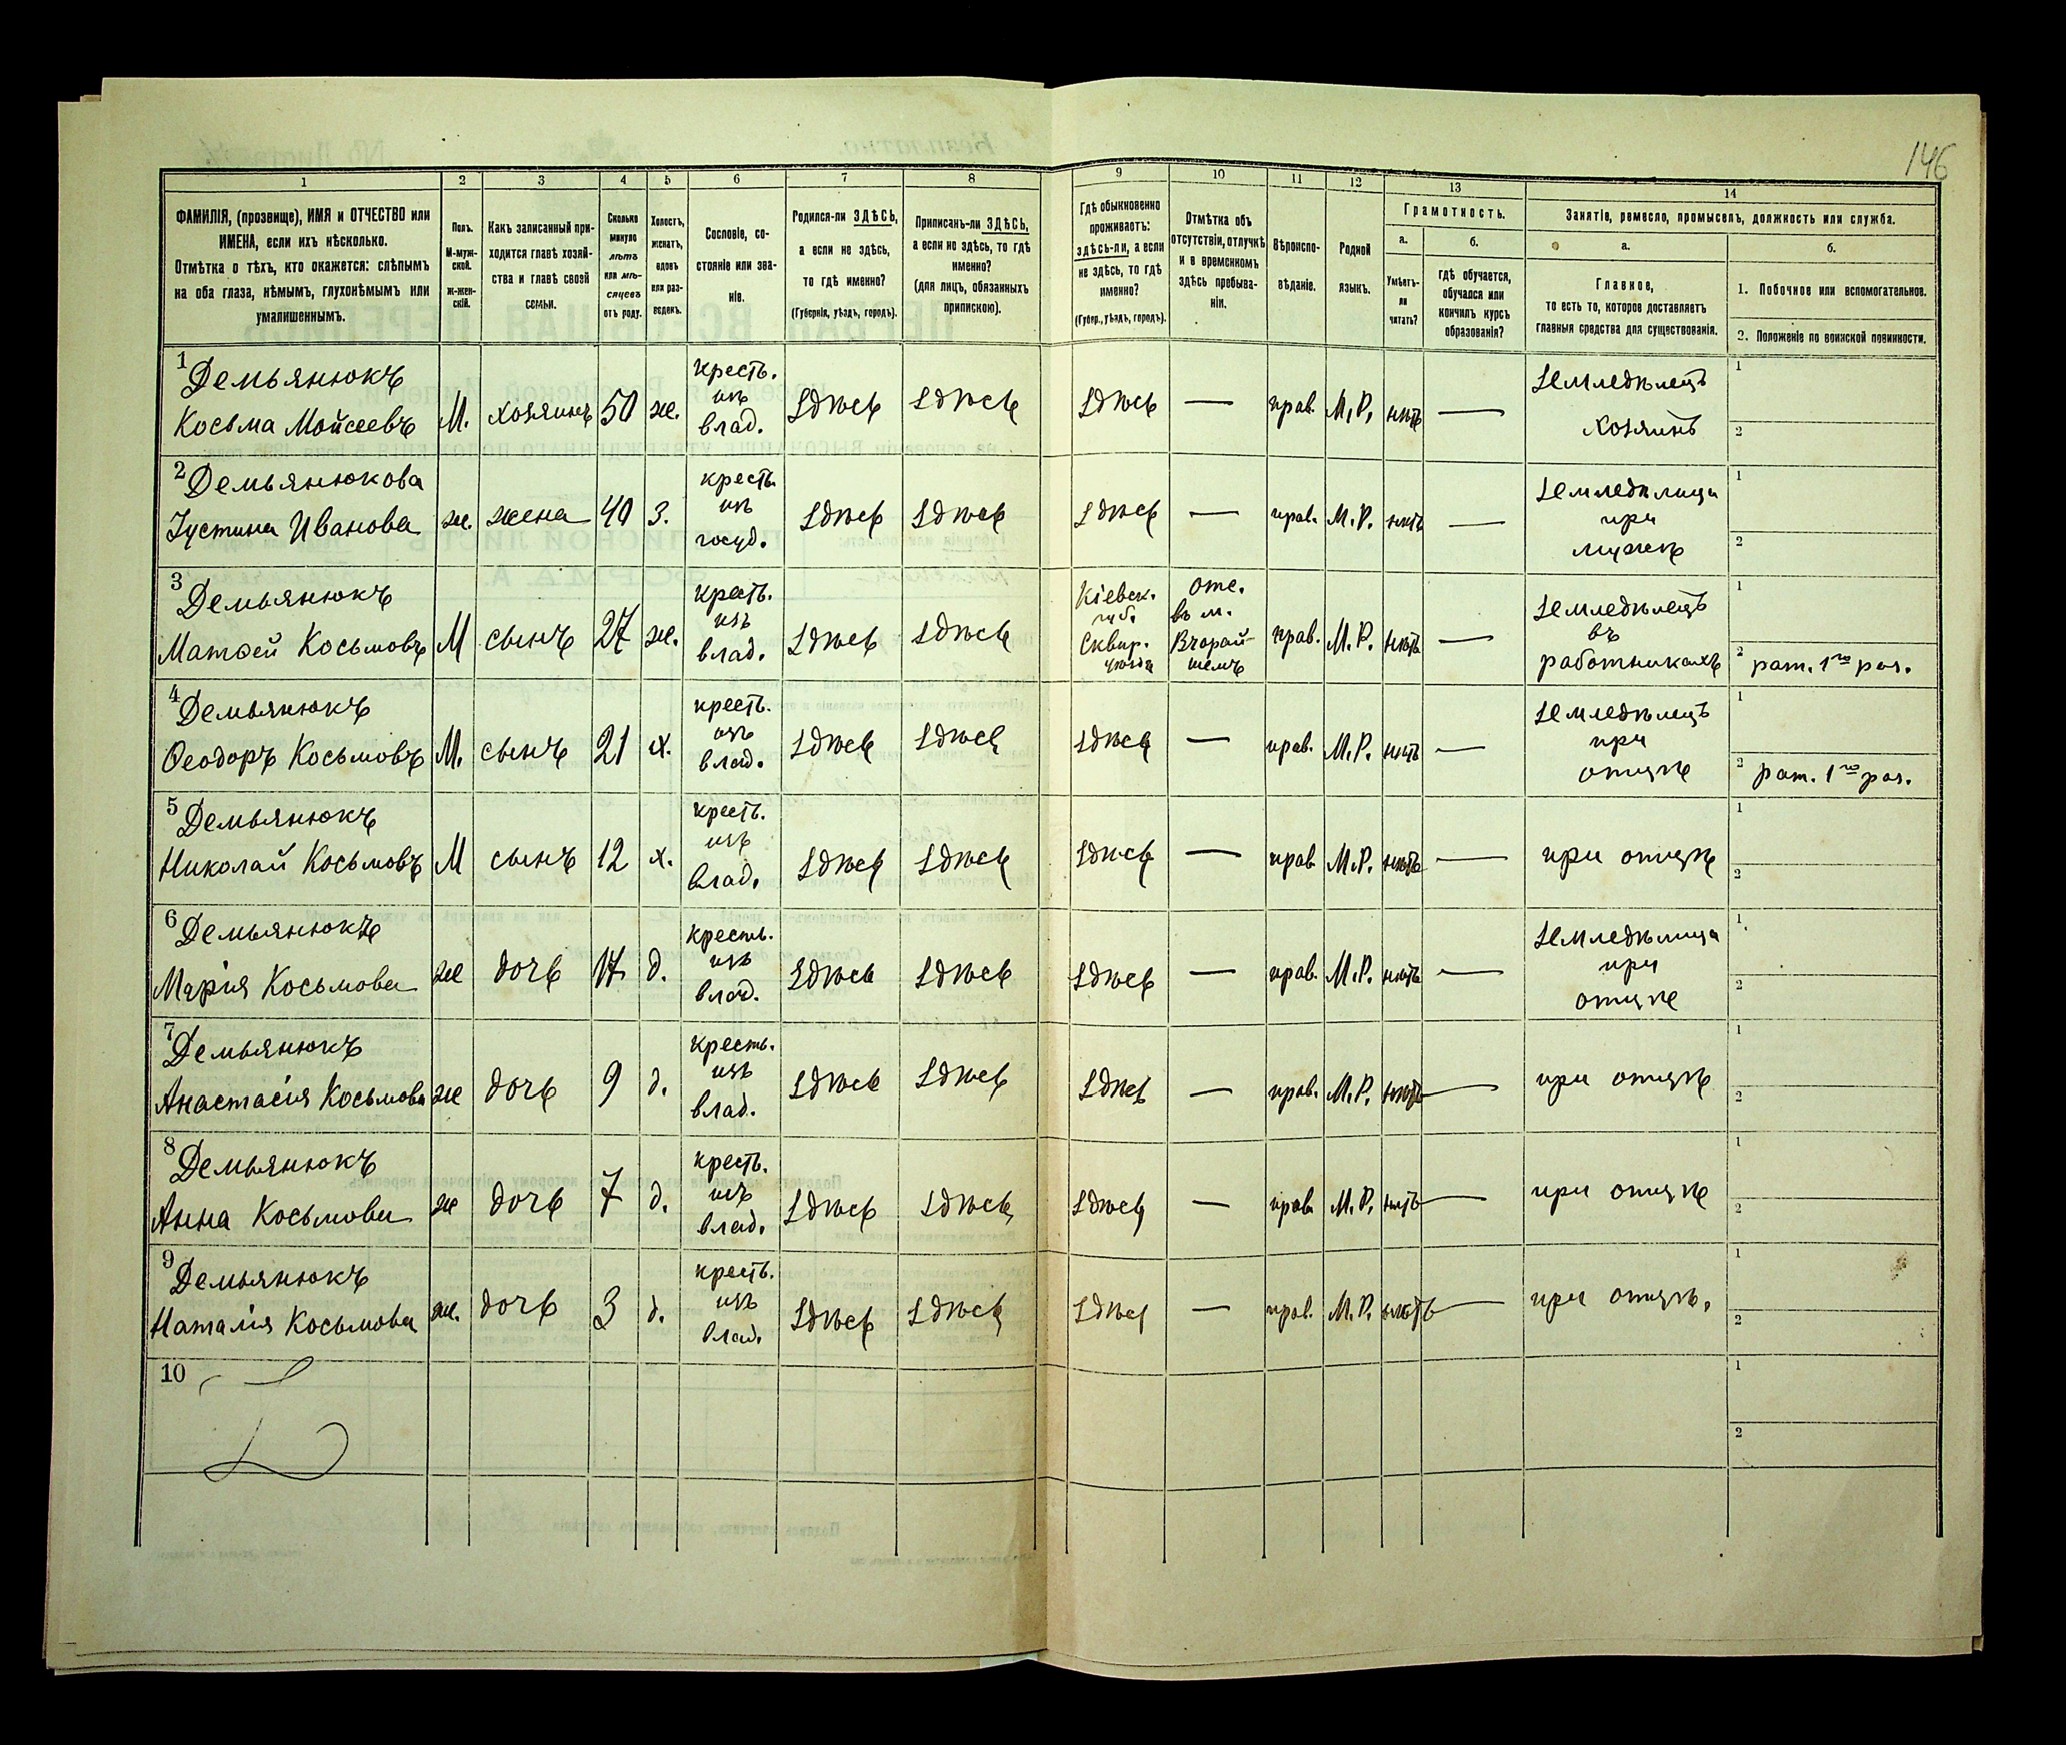 146
1 2 3 4 5 6 7 8 9 10 11 12 13 14
ФАМИЛІЯ, (прозвище), ИМЯ и ОТЧЕСТВО или
ИМЕНА, если ихъ нѣсколько.
Отмѣтка о тѣхъ, кто окажется: слѣпымъ
на оба глаза, нѣмымъ, глухонѣмымъ или
умалишеннымъ.
Полъ.
М-муж-
ской.
ж-жен-
скій.
Какъ записанный при-
ходится главѣ хозяй-
ства и главѣ своей
семьи.
Сколько
минуло
лѣтъ
или мѣ-
сяцевъ
отъ роду.
Холостъ,
женатъ,
вдовъ
или раз-
веденъ.
Сословіе, со-
стояніе или зва-
ніе.
Родился-ли ЗДѢСЬ,
а если не здѣсь,
то гдѣ именно?
(Губернія, уѣздъ, городъ).
Приписанъ-ли ЗДѢСЬ,
а если не здѣсь, то гдѣ
именно?
(для лицъ, обязанныхъ
припискою).
Гдѣ обыкновенно
проживаетъ:
здѣсь-ли, а если
не здѣсь, то гдѣ
именно?
(Губер., уѣздъ, городъ).
Отмѣтка объ
отсутствіи, отлучкѣ
и о временномъ
здѣсь пребыва-
ніи.
Вѣроиспо-
вѣданіе.
Родной
языкъ.
Грамотность.
а. б.
Умѣетъ-
ли
читать?
гдѣ обучается,
обучался или
кончилъ курсъ
образованія?
Занятіе, ремесло, промыселъ, должность или служба.
а. б.
Главное,
то есть то, которое доставляетъ
главныя средства для существованія.
1. Побочное или вспомогательное.
2. Положеніе по воинской повинности.
1 Демьянюкъ
Косьма Мойсеевъ М. хозяинъ 50 ж. кресть. изъ влад. здѣсь здѣсь здѣсь — прав. М.Р. нѣтъ — земледѣлецъ хозяинъ 1 2
2 Демьянюкова
Іустина Иванова ж. жена 40 з. кресть. изъ госуд. здѣсь здѣсь здѣсь — прав. М.Р. нѣтъ — земледѣлица при мужѣ 1 2
3 Демьянюкъ
Матѳей Косьмовъ М сынъ 27 ж. кресть. изъ влад. здѣсь здѣсь Кіевск. губ. Сквир. уѣзда отс. въ м. Вчорай- шемъ прав. М.Р. нѣтъ — земледѣлецъ въ работникахъ 1 2 рат. 1го раз.
4 Демьянюкъ
Ѳеодоръ Косьмовъ М. сынъ 21 х. кресть. изъ влад. здѣсь здѣсь здѣсь — прав. М.Р. нѣтъ — земледѣлецъ при отцѣ 1 2 рат. 1го раз.
5 Демьянюкъ
Николай Косьмовъ М сынъ 12 х. кресть. изъ влад. здѣсь здѣсь здѣсь — прав М.Р. нѣтъ — при отцѣ 1 2
6 Демьянюкъ
Марія Косьмова ж дочь 17 д. кресть. изъ влад. здѣсь здѣсь здѣсь — прав. М.Р. нѣтъ — земледѣлица при отцѣ 1 2
7 Демьянюкъ
Анастасія Косьмова ж дочь 9 д. кресть. изъ влад. здѣсь здѣсь здѣсь — прав. М.Р. нѣтъ — при отцѣ 1 2
8 Демьянюкъ
Анна Косьмова ж дочь 7 д. кресть. изъ влад. здѣсь здѣсь здѣсь — прав М.Р. нѣтъ — при отцѣ 1 2
9 Демьянюкъ
Наталія Косьмова ж. дочь 3 д. кресть. изъ влад. здѣсь здѣсь здѣсь — прав. М.Р. нѣтъ — при отцѣ. 1 2
10 1 2